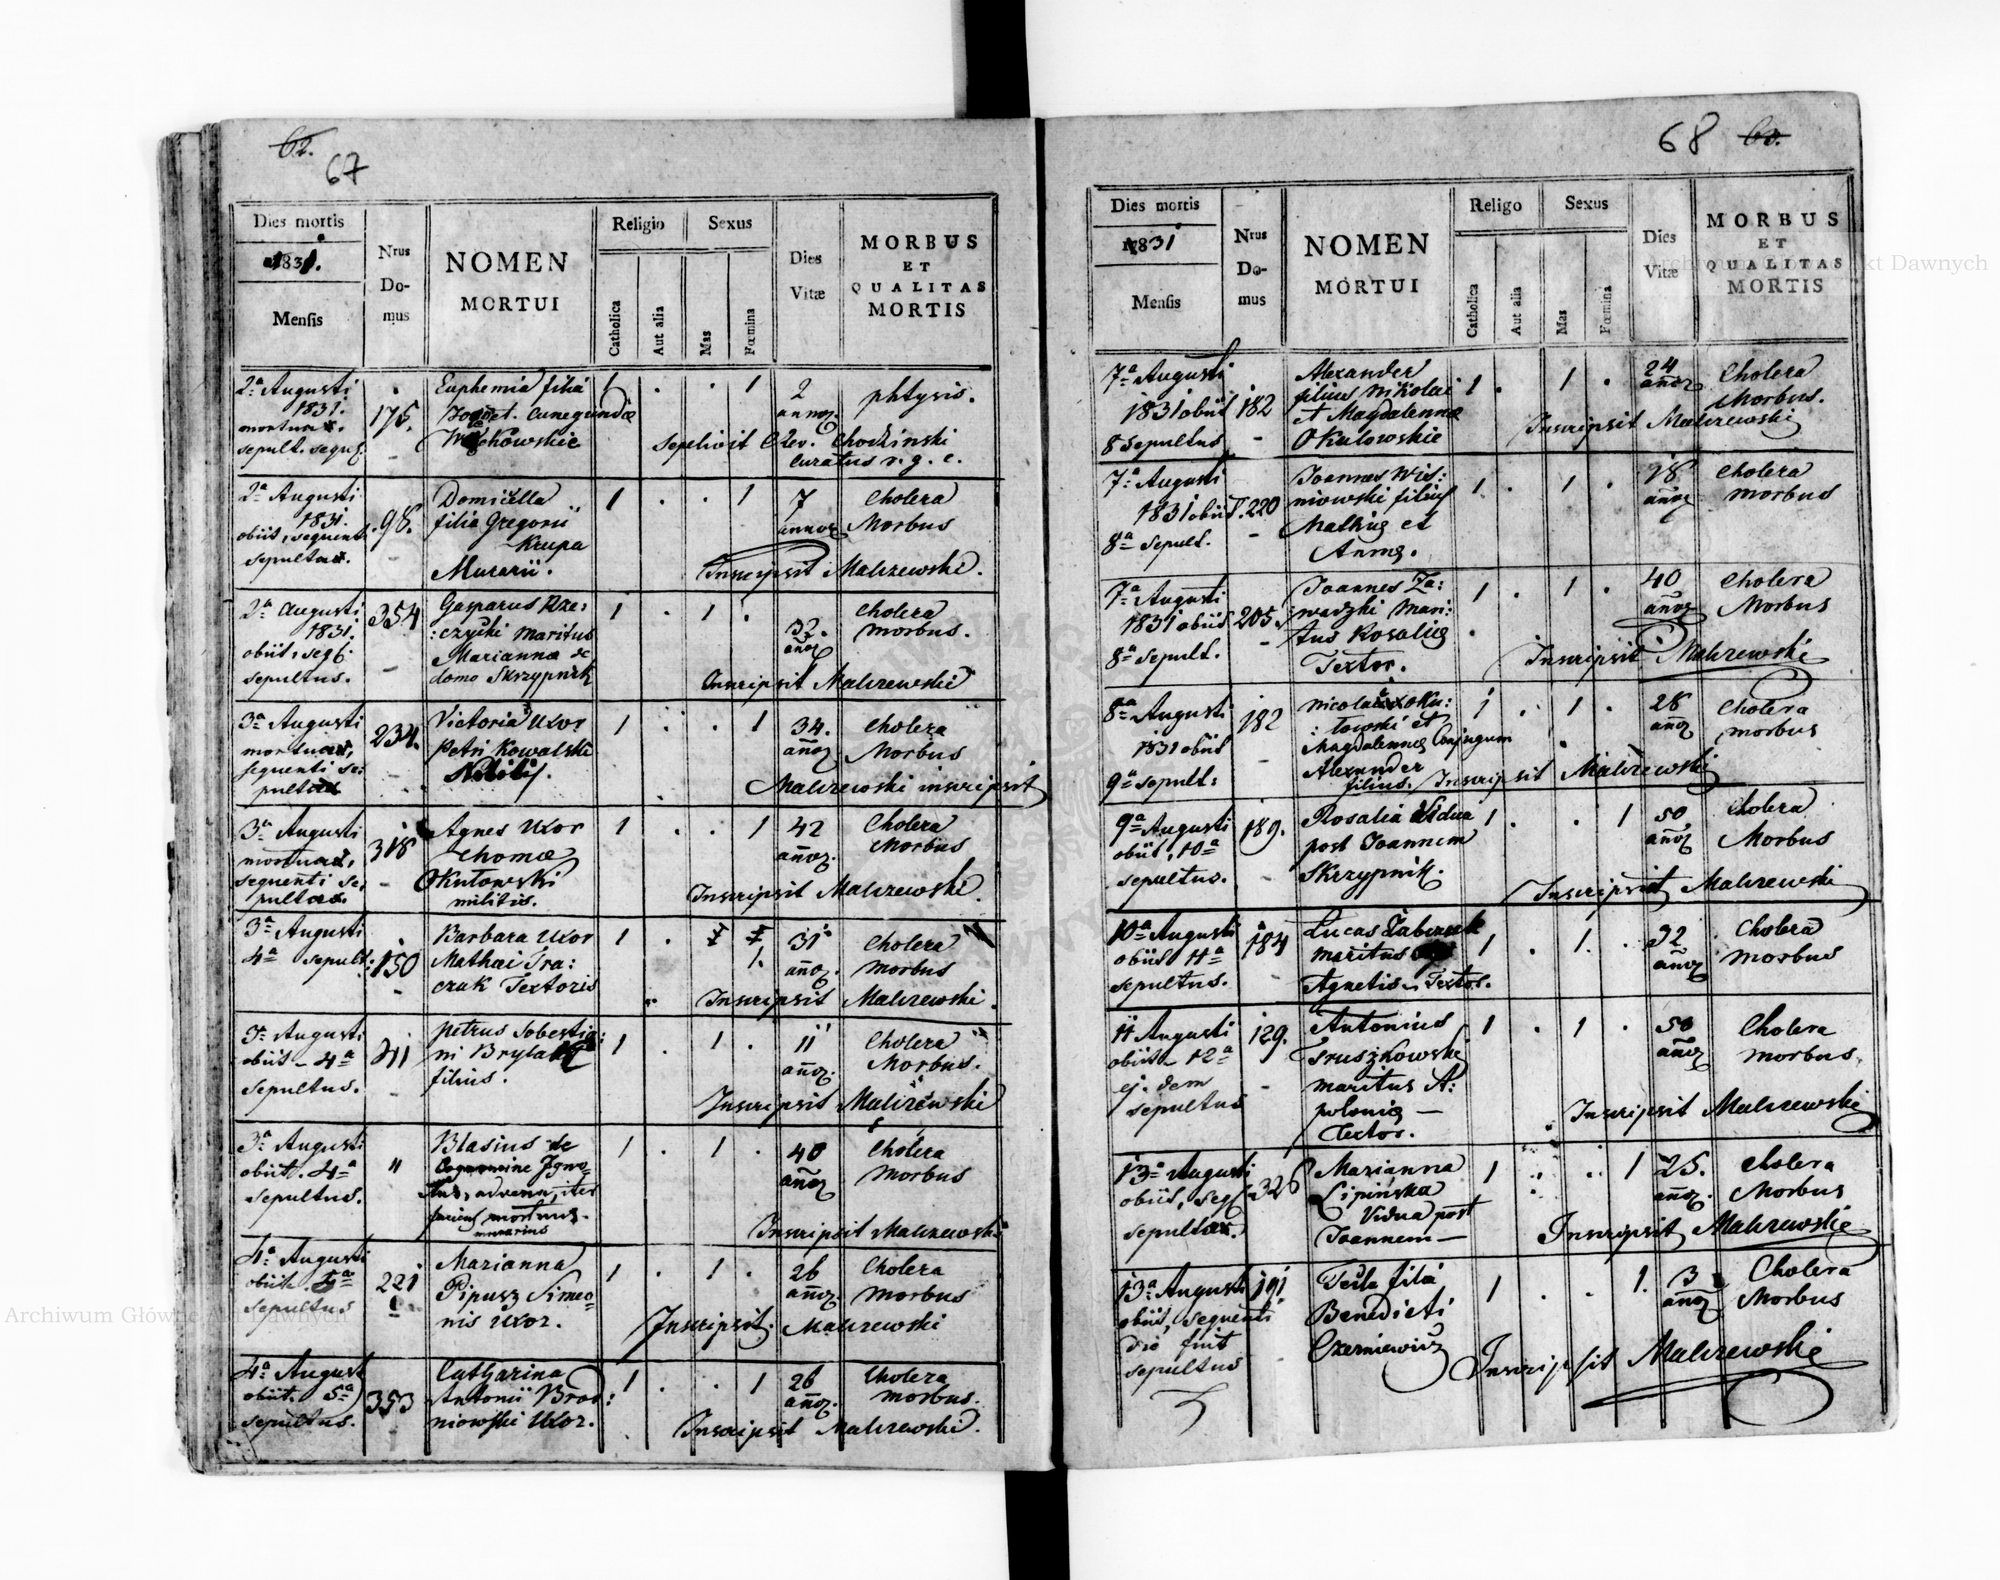 62.
67
Dies mortis
1831.
Mensis
Nrus
Do-
mus
NOMEN
MORTUI
Religio
Catholica
Aut alia
Sexus
Mas
Fœmina
Dies
Vitæ
MORBUS
ET
QUALITAS
MORTIS
2ª Augusti
1831.
mortua.
sepult. seq.
175.
Euphemia filia
et Cunegundæ
1 . . 1
2
annor.
phtysis.
sepelivit Rev. Chodzinski
Curatus r. g. c.
2ª Augusti
1831.
obiit, sequenti
sepulta.
98.
Domicella
filia Gregorii
Krupa
Murarii.
1 . . 1
7
annor
Cholera
Morbus
Inscripsit Malczewski.
2ª Augusti
1831.
obiit, seq.
sepultus.
354
Gasparus Rze:
:czycki maritus
Marianna de
domo Skrzypnik
1 . 1 .
32.
añor
Cholera
morbus.
Inscripsit Malczewski
3ª Augusti
mortua,
sequenti se:
pulta
234.
Victoria Uxor
Petri Kowalski
1 . . 1
34.
añor
Cholera
Morbus
Malczewski inscripsit
3ª Augusti
mortua,
sequenti se:
pulta.
318
Agnes Uxor
Thomæ
Okutowski
militis.
1 . . 1
42
añor.
Cholera
Morbus
Inscripsit Malczewski.
3ª Augusti
4ª sepult:
150
Barbara Uxor
Mathæi Tra:
czuk Textoris
1 . 1.
31
añor.
Cholera
morbus
Inscripsit Malczewski.
3ª Augusti
obiit - 4ª
Sepultus.
Petrus Sobestia:
ni
filius.
1 . 1 .
11
añor.
Cholera
Morbus.
Inscripsit Malczewski
3ª Augusti
obiit. 4ª
Sepultus.
"
Blasius de
Cognomine Igno-
tus, advena, iter
faciens mortuus.
murarius
1 . 1 .
40
añor
Cholera
morbus
Inscripsit Malczewski
4ª Augusti
obiit. 5ª
Sepultus
221
Marianna
Pipusz Simeo-
nis Uxor.
1 . 1 .
26
añor.
Cholera
morbus
Inscripsit. Malczewski
4ª August
obiit. 5ª
sepultus.
353
Catharina
Antonii Bro:
niowski Uxor.
1 . . 1
26
añor.
Cholera
morbus.
Inscripsit Malczewski.
68
Dies mortis
1831
Mensis
Nrus
Do-
mus
NOMEN
MORTUI
Religo
Catholica
Aut alia
Sexus
Mas
Fœmina
Dies
Vitæ
MORBUS
ET
QUALITAS
MORTIS
7ª Augusti
1831 obiit
8 Sepultus
182
Alexander
filius Nikolai
et Magdalenna
Okulowskie
1 . 1 .
24
añor
Cholera
Morbus.
Inscripsit Malczewski
7ª Augusti
1831 obiit
8ª Sepult.
220
Joannes Wis:
niowski filius
Mathiæ et
Annæ.
1 . 1 .
18
añor
Cholera
morbus
7ª Augusti
1831 obiit
8ª Sepult.
205.
Joannes Za:
:wadzki Mari:
tus Rosaliæ
Textor.
1 . 1 .
40
añor
Cholera
Morbus
Inscripsit Malczewski
8ª Augusti
1831 obiit
9ª Sepult:
182
Nicolai Oku:
:lowski et
Magdalennæ Conjugum
Alexander
filius. Inscripsit Malczewski
1 . 1 .
26
añor
Cholera
morbus
9ª Augusti
obiit, 10ª
sepultus.
189.
Rosalia Vidua
post Joannem
Skrzypnik.
1 . . 1
50
añor
Cholera
Morbus
Inscripsit Malczewski
10ª Augusti
obiit 11ª
sepultus.
184
Lucas
maritus
Agnetis - Textor.
1 . 1 .
32
añor
Cholera
morbus
11 Augusti
obiit - 12ª
ej. dem
sepultus
129.
Antonius
Truszkowski
maritus A:
poloniæ —
Textor.
1 . 1 .
50
añor
Cholera
morbus.
Inscripsit Malczewski
13ª Augusti
obiit, seq
sepulta.
326
Marianna
Lipińska
Vidua post
Joannem —
1 . . 1
25.
añor.
Cholera
Morbus
Inscripsit Malczewski
13ª Augusti
obiit, sequenti
die fuit
sepultus
191.
Tecla filia
Benedicti
Czerniewicz
1 . . 1.
3
añor
Cholera
Morbus
Inscripsit Malczewski
Archiwum Główne Akt Dawnych
Archiwum Główne Akt Dawnych